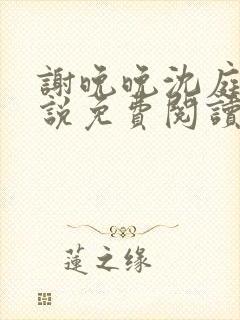 謝晚晚沈庭
説免費閱讀
蓮之缘